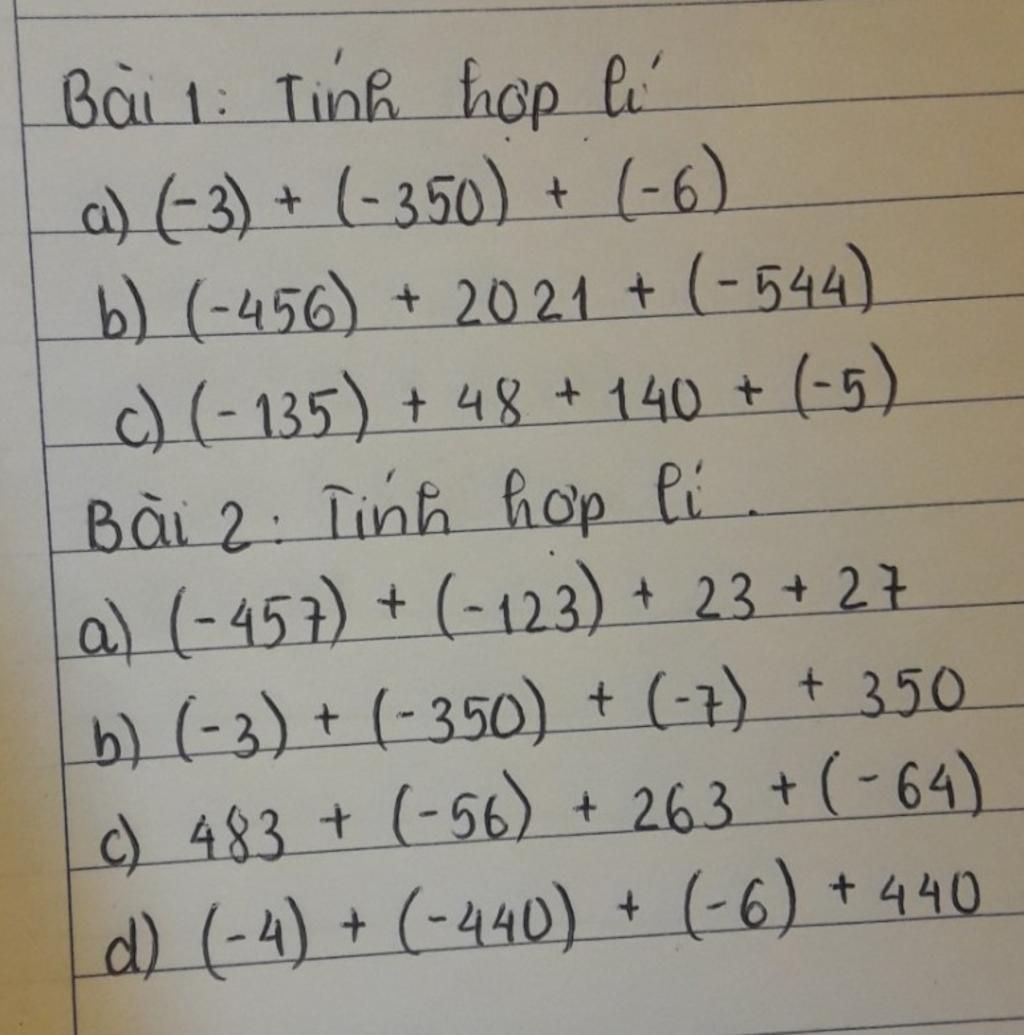 Bài 1: Tính hợp lí
a) (-3) + (-350) + (-6)
b) (-456) + 2021 + (-544)
c) (-135) + 48 + 140 + (-5)
Bài 2: Tính hợp lí.
a) (-457) + (-123) + 23 + 27
b) (-3) + (-350) + (-7) + 350
c) 483 + (-56) + 263 + (-64)
d) (-4) + (-440) + (-6) + 440